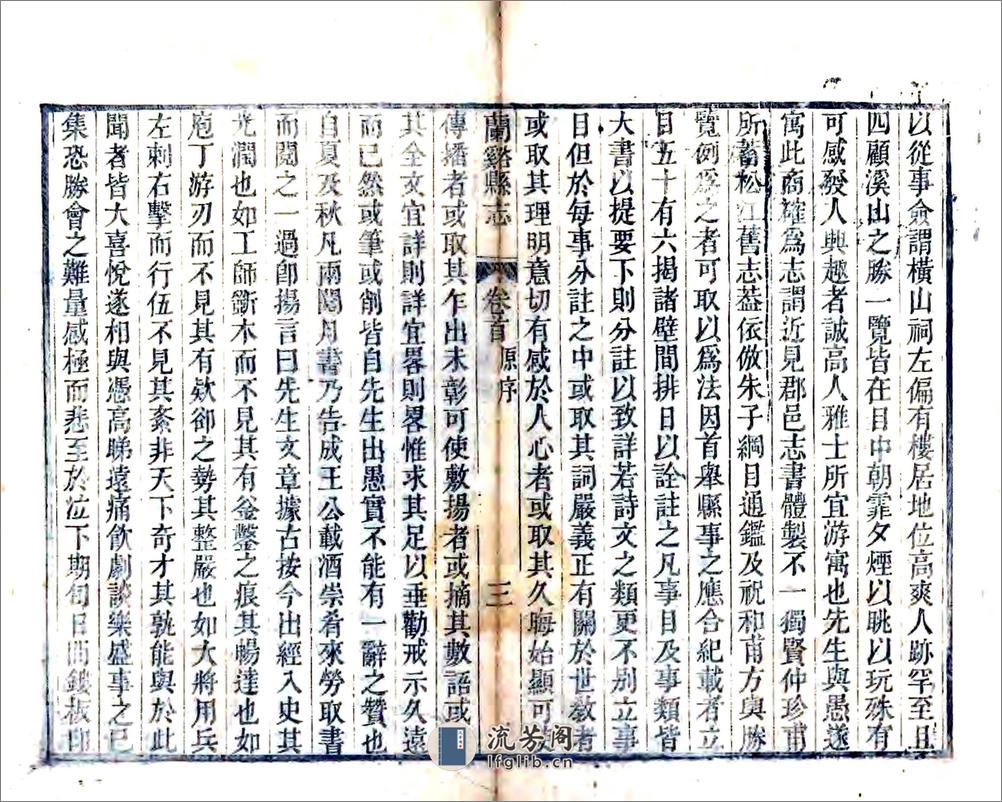 以從事僉謂橫山祠左偏有樓居地位高爽人跡罕至且
四顧溪山之勝一覽皆在目中朝霏夕煙以眺以玩殊有
可感發人興趣者誠高人雅士所宜游寓也先生與愚遂
寓此商確為志謂近見郡邑志書體製不一獨賢仲珍甫
所蓄松江舊志葢依倣朱子綱目通鑑及祝和甫方輿勝
覽例為之者可取以為法因首舉縣事之應合紀載者立
目五十有六揭諸壁間排日以詮註之凡事目及事類皆
大書以提要下則分註以致詳若詩文之類更不別立事
目但於每事分註之中或取其詞嚴義正有關於世敎者
或取其理明意切有感於人心者或取其久晦始顯可
蘭谿縣志 卷首 原序 三
傳播者或取其乍出未彰可使敷揚者或摘其數語或
其全文宜詳則詳宜畧則畧惟求其足以垂勸戒示久遠
而已然或筆或削皆自先生出愚實不能有一辭之贊也
自夏及秋凡兩閱月書乃告成王公載酒崇肴來勞取書
而閱之一過卽揚言曰先生文章據古按今出經入史其
光潤也如工師斵木而不見其有釜鑿之痕其暢達也如
庖丁游刃而不見其有欵卻之勢其整嚴也如大將用兵
左刺右擊而行伍不見其紊非天下奇才其孰能與於此
聞者皆大喜悅遂相與憑高睇遠痛飲劇談樂盛事之已
集恐勝會之難量感極而悲至於泣下期旬日間鋟板印
流芳阁
lfglib.cn